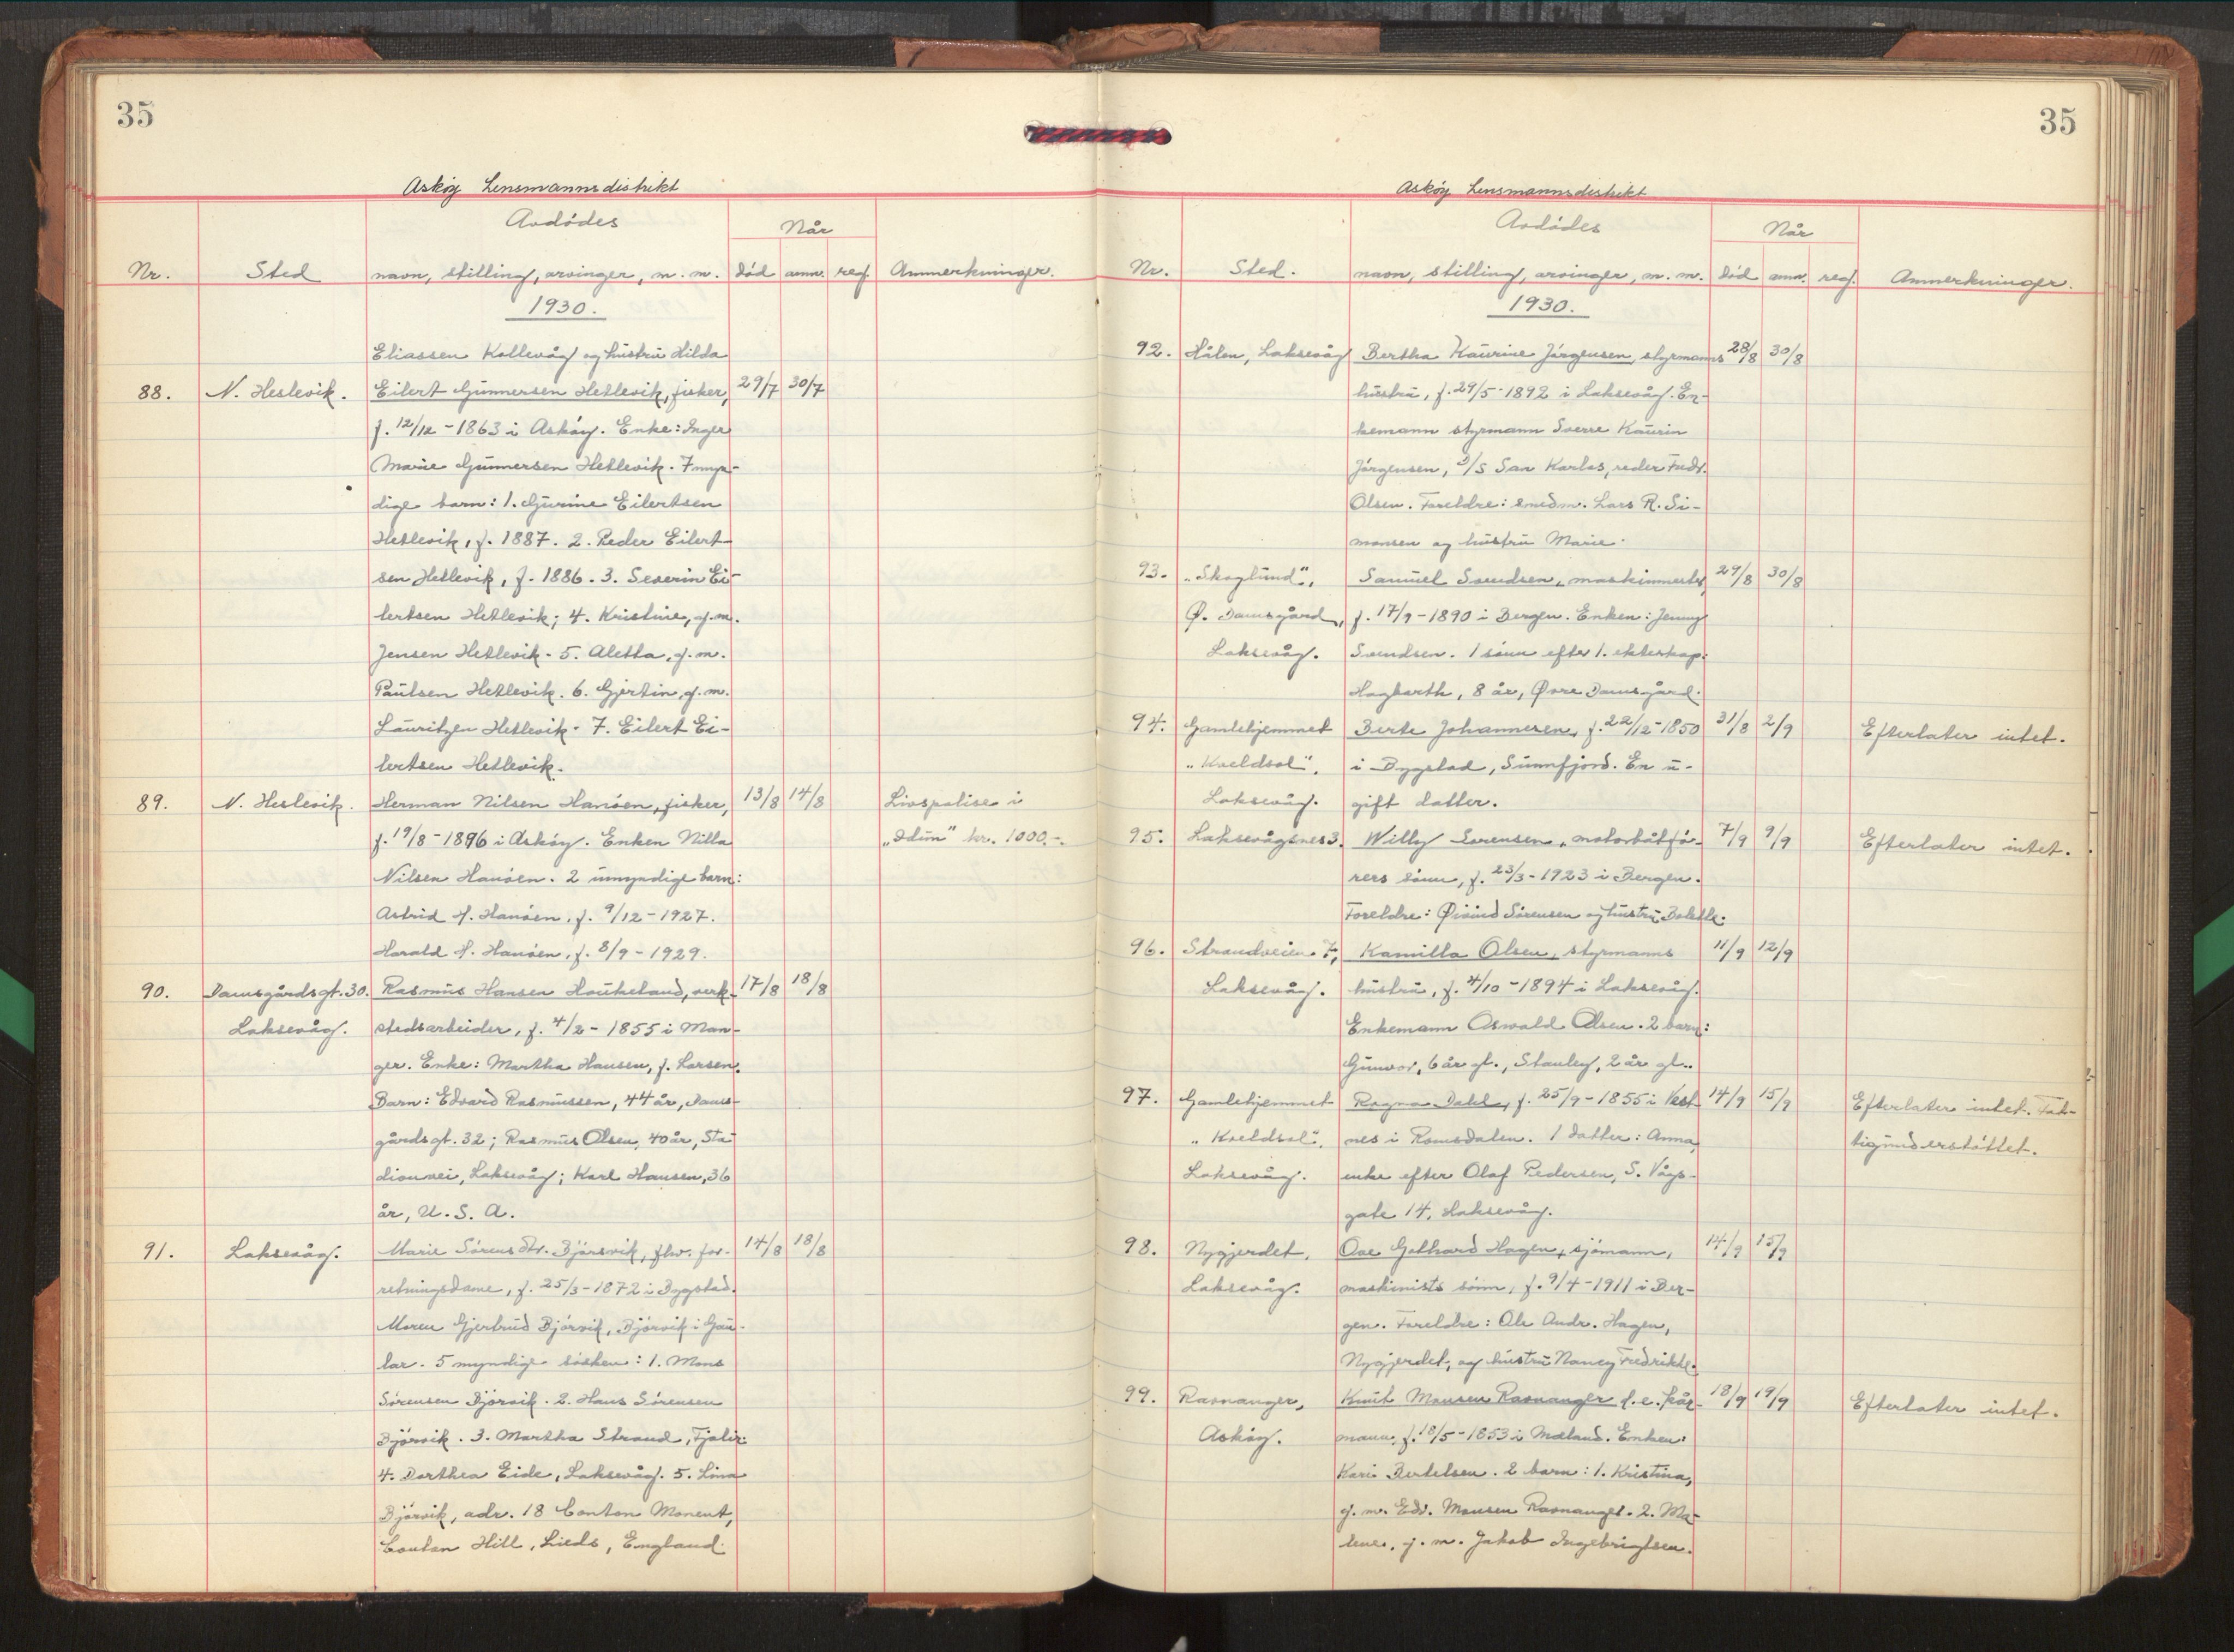 35
Askøy Lensmannsdistrikt
Avdødes
Når
Nr.
Sted
navn, stilling, arvinger, m. m.
død
anm.
reg.
Anmerkninger.
1930.
Eliassen Kollevåg og hustru Hilda
88. N. Heslevik. Eilert Gunnersen Hetlevik, fisker, 29/7 30/7
f. 12/12-1863 i Askøy. Enke: Inger
Marie Gunnersen Hetlevik. 7 myn-
dige barn: 1. Gurine Eilertsen
Hetlevik, f. 1887. 2. Peder Eilert-
sen Hetlevik, f. 1886. 3. Severin Ei-
lertsen Hetlevik; 4. Kristine, g. m.
Jensen Hetlevik. 5. Aletta, g. m.
Paulsen Hetlevik. 6. Gjertin, g. m.
Lauritzen Hetlevik. 7. Eilert Ei-
lertsen Hetlevik.
89. N. Heslevik. Herman Nilsen Hanøen, fisker, 13/8 14/8 Livspolise i
f. 19/8-1896 i Askøy. Enken Nilla „Idun" kr. 1000.-.
Nilsen Hanøen. 2 umyndige barn:
Astrid H. Hanøen, f. 9/12-1927.
Harald H. Hanøen, f. 8/9-1929.
90. Damsgårdsgt. 30. Rasmus Hansen Haukeland, verk- 17/8 18/8
Laksevåg. stedsarbeider, f. 4/2-1855 i Man-
ger. Enke: Martha Hansen, f. Larsen.
Barn: Edvard Rasmussen, 44 år, Dams-
gårdsgt. 32; Rasmus Olsen, 40 år, Sta-
dionvei, Laksevåg; Karl Hansen, 36
år, U. S. A.
91. Laksevåg. Marie Sørensdtr. Bjørsvik, fhv. for- 14/8 18/8
retningsdame, f. 25/3-1872 i Bygstad.
Moren Gjertrud Bjørvik, Bjørvik i Gau-
lar. 5 myndige søsken: 1. Mons
Sørensen Bjørvik. 2. Hans Sørensen
Bjørvik. 3. Martha Strand, Fjaler.
4. Dorthea Eide, Laksevåg. 5. Lina
Bjørvik, adr. 18 Conton Monent,
Contan Hill, Lieds, England.
35
Askøy Lensmannsdistrikt
Avdødes
Når
Nr.
Sted.
navn, stilling, arvinger, m. m.
død
anm.
reg.
Anmerkninger.
1930.
92. Hålen, Laksevåg Bertha Kaurine Jørgensen, styrmanns 28/8 30/8
hustru, f. 29/5-1892 i Laksevåg. En-
kemann styrmann Sverre Kaurin
Jørgensen, D/S San Karlos, reder Fred.
Olsen. Foreldre: smedm. Lars R. Si-
monsen og hustru Marie.
93. „Skoglund", Samuel Svendsen, maskinmester, 29/8 30/8
Ø. Damsgård, f. 17/9-1890 i Bergen. Enken: Jenny
Laksevåg. Svendsen. 1 sønn efter 1. ekteskap:
Hagbarth, 8 år, Øvre Damsgård.
94. Gamlehjemmet Berte Johannesen, f. 22/12-1850 31/8 2/9 Efterlater intet.
„Kveldsol", i Bygstad, Sunnfjord. En u-
Laksevåg. gift datter.
95. Laksevågsnes 3. Willy Sørensen, motorbåtfø- 7/9 9/9 Efterlater intet.
rers sønn, f. 23/3-1923 i Bergen.
Foreldre: Øivind Sørensen og hustru Bolette.
96. Strandveien 7, Kamilla Olsen, styrmanns 11/9 12/9
Laksevåg. hustru, f. 4/10-1894 i Laksevåg.
Enkemann Oswald Olsen. 2 barn:
Gunvor, 6 år gl., Stanley, 2 år gl..
97. Gamlehjemmet Ragna Dahl, f. 25/9-1855 i Vest- 14/9 15/9 Efterlater intet. Fat-
„Kveldsol", nes i Romsdalen. 1 datter: Anna, tigunderstøttet.
Laksevåg. enke efter Olaf Pedersen, S. Vågs-
gate 14, Laksevåg.
98. Nygjerdet, Ove Gothard Hagen, sjømann, 14/9 15/9
Laksevåg. maskinists sønn, f. 9/4-1911 i Ber-
gen. Foreldre: Ole Andr. Hagen,
Nygjerdet, og hustru Nancy Fredrikke.
99. Ravnanger, Knut Monsen Ravnanger f. e. kår- 18/9 19/9 Efterlater intet.
Askøy. mann, f. 18/5-1853 i Mæland. Enken:
Kari Bertelsen. 2 barn: 1. Kristina,
g. m. Edv. Monsen Ravnanger. 2. Ma-
lene, g. m. Jakob Ingebrigtsen.